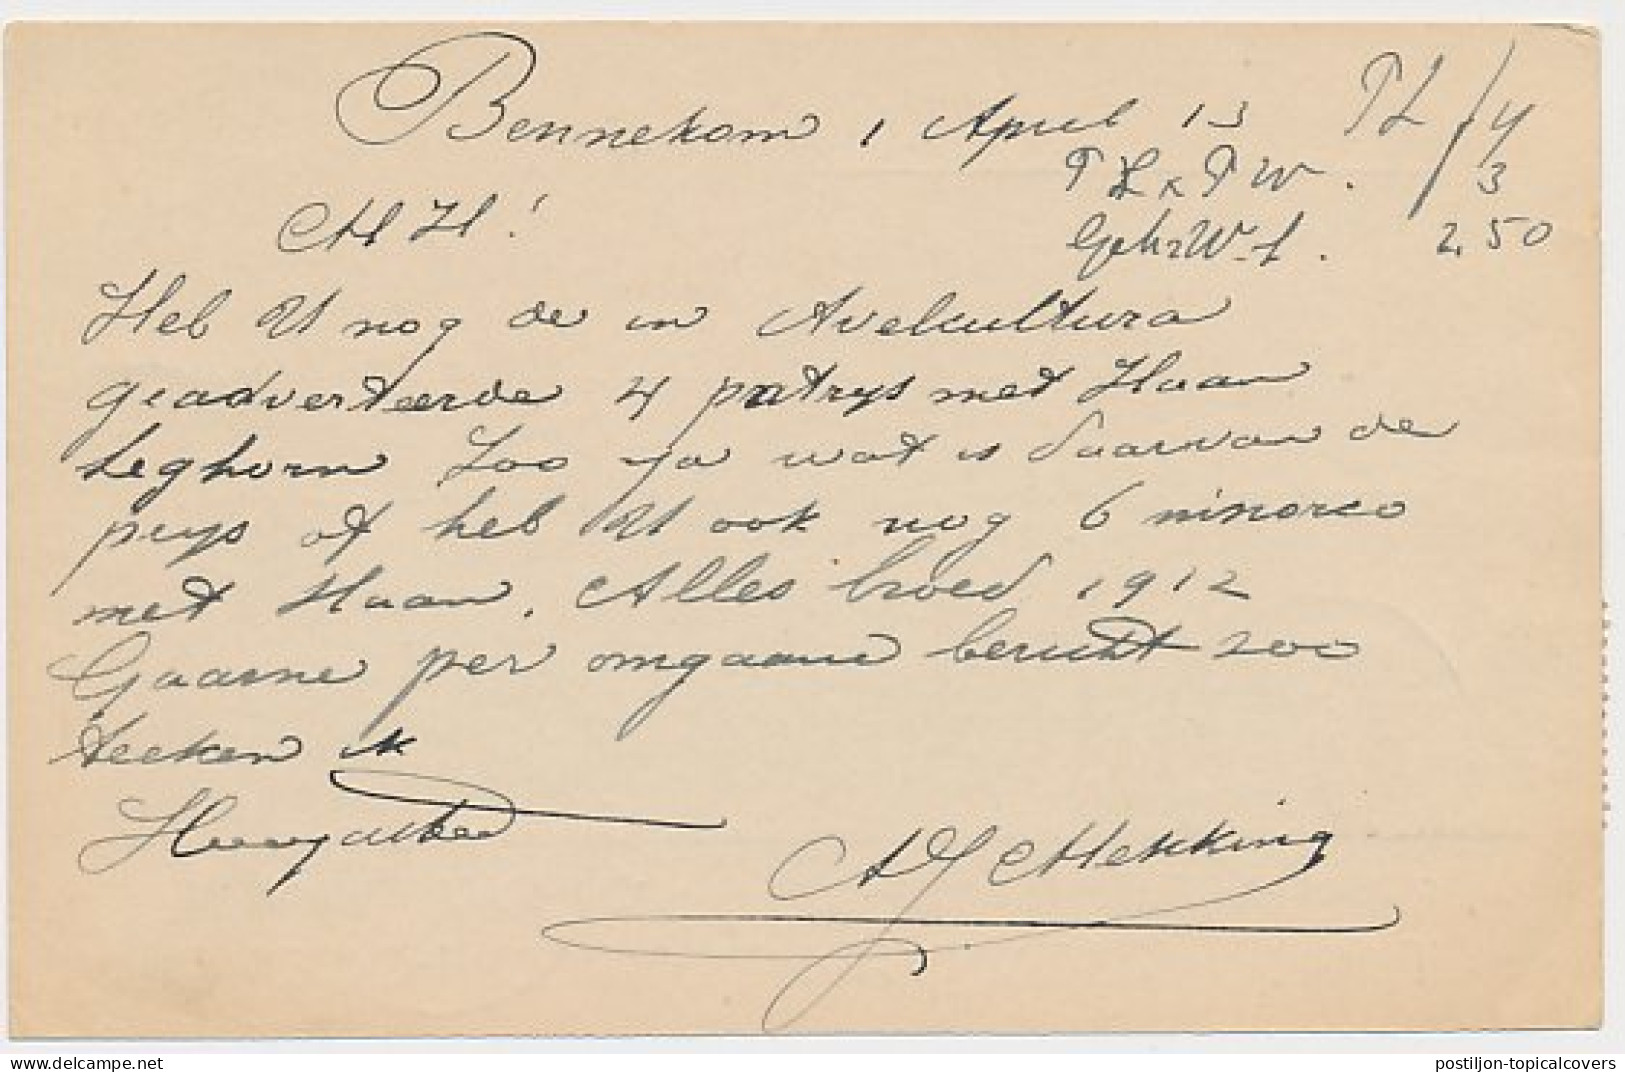 Bennekom 1 April 13
P L / 4
P W . 3
2,50
M H!
Heb U nog de in Avelcultura
geadverteerde 4 patrys met Haan
Leghorn Zoo ja wat is daarvan de
prys of heb U ook nog 6 ninorco
met Haan. Alles broed 1912
Gaarne per omgaane bericht zoo
teeken ik
Hoogachtend
AJ Mekking
postiljon-topicalcovers
© www.delcampe.net